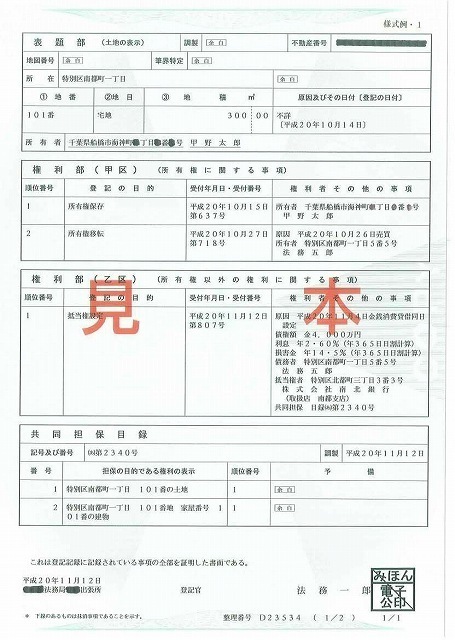 様式例・1
表題部 (土地の表示) 調製 余白 不動産番号
地図番号 余白 筆界特定 余白
所在 特別区南都町一丁目
①地番 ②地目 ③地積 ㎡ 原因及びその日付〔登記の日付〕
101番 宅地 300 00 不詳
〔平成20年10月14日〕
所有者 千葉県船橋市海神町 丁目 番 号 甲野太郎
権利部(甲区) (所有権に関する事項)
順位番号 登記の目的 受付年月日・受付番号 権利者その他の事項
1 所有権保存 平成20年10月15日 所有者 千葉県船橋市海神町 丁目 番 号
第637号 甲野太郎
2 所有権移転 平成20年10月27日 原因 平成20年10月26日売買
第718号 所有者 特別区南都町一丁目5番5号
法務五郎
権利部(乙区) (所有権以外の権利に関する事項)
順位番号 登記の目的 受付年月日・受付番号 権利者その他の事項
見本
1 抵当権設定 平成20年11月12日 原因 平成20年11月4日金銭消費貸借同日
第807号 設定
債権額 金4,000万円
利息 年2・60%(年365日日割計算)
損害金 年14・5%(年365日日割計算)
債務者 特別区南都町一丁目5番5号
法務五郎
抵当権者 特別区北都町三丁目3番3号
株式会社南北銀行
(取扱店 南都支店)
共同担保 目録㈲第2340号
共同担保目録
記号及び番号 ㈲第2340号 調製 平成20年11月12日
番号 担保の目的である権利の表示 順位番号 予備
1 特別区南都町一丁目 101番の土地 1 余白
2 特別区南都町一丁目 101番地 家屋番号 1 1 余白
01番の建物
これは登記記録に記録されている事項の全部を証明した書面である。
平成20年11月12日
法務局 出張所 登記官 法務一郎
みほん
電子
公印
* 下線のあるものは抹消事項であることを示す。 整理番号 D23534 (1/2) 1/1